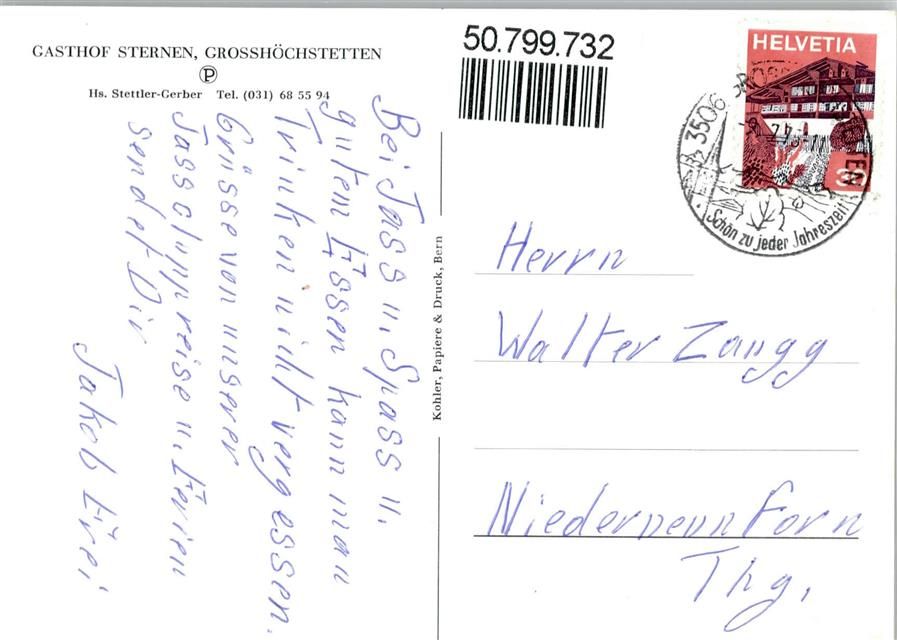 GASTHOF STERNEN, GROSSHÖCHSTETTEN
P
Hs. Stettler-Gerber Tel. (031) 68 55 94
Bei Jass u. Spass u.
guten Essen kann man
Trinken nicht vergessen.
Grüsse von unserer
Jassclubbreise u. Ferien
sendet Dir
Jakob
Kohler, Papiere & Druck, Bern
50.799.732
HELVETIA
3506
Schön zu jeder Jahreszeit
Herrn
Walter Zangg
Niederneunforn
Thg.